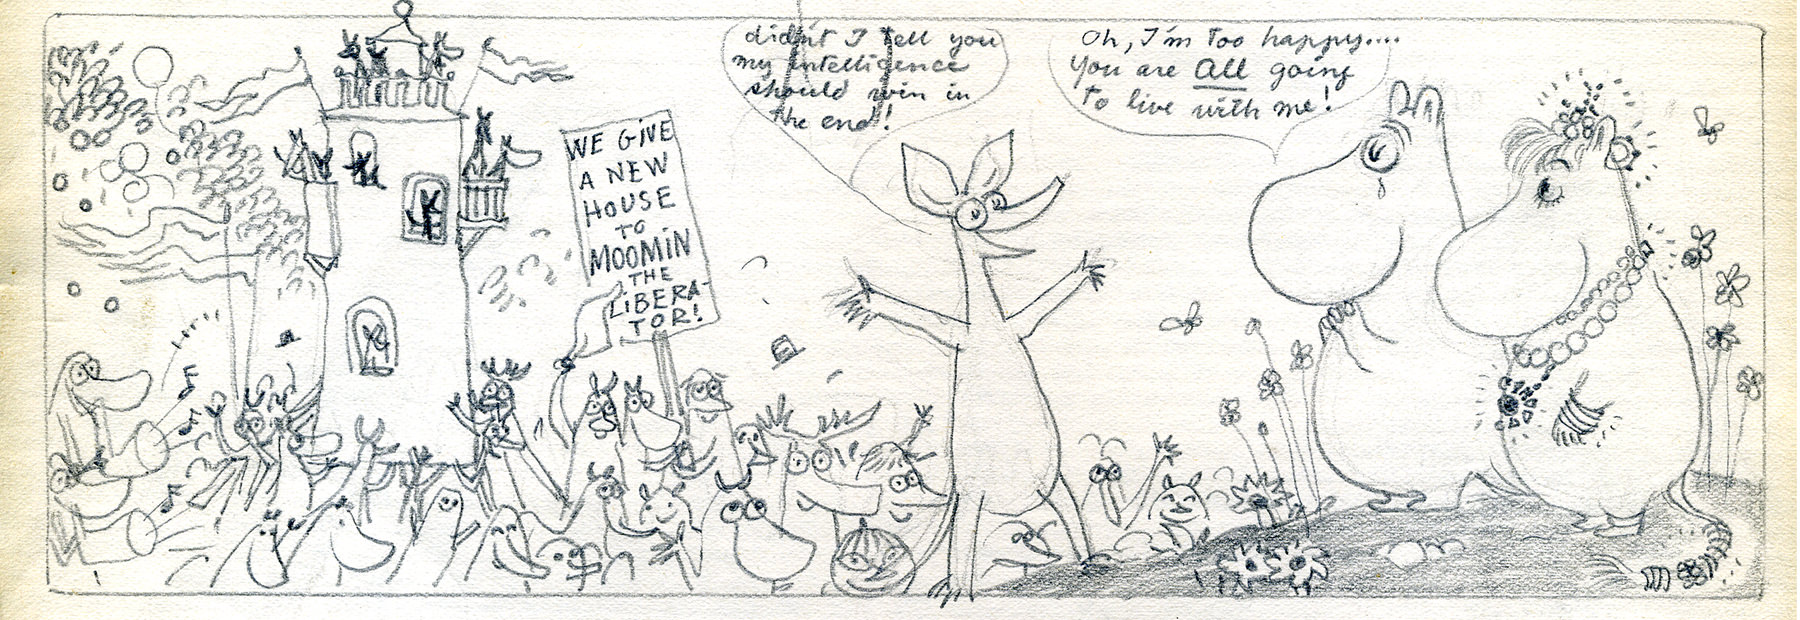 WE GIVE
A NEW
HOUSE
TO
MOOMIN
THE
LIBERA-
TOR!
didn't I tell you
my intelligence
should win in
the end!
Oh, I'm too happy....
You are All going
to live with me!